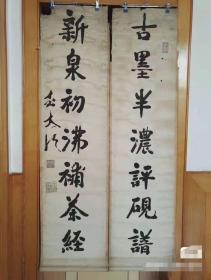 古墨半濃評硯譜
新泉初沸補茶経